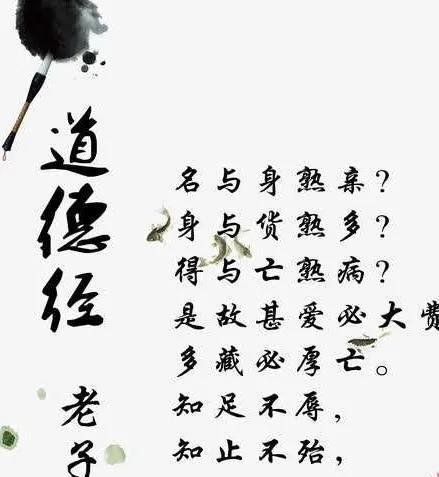 道德经
老子
名与身熟亲？
身与货熟多？
得与亡熟病？
是故甚爱必大费
多藏必厚亡。
知足不辱，
知止不殆，